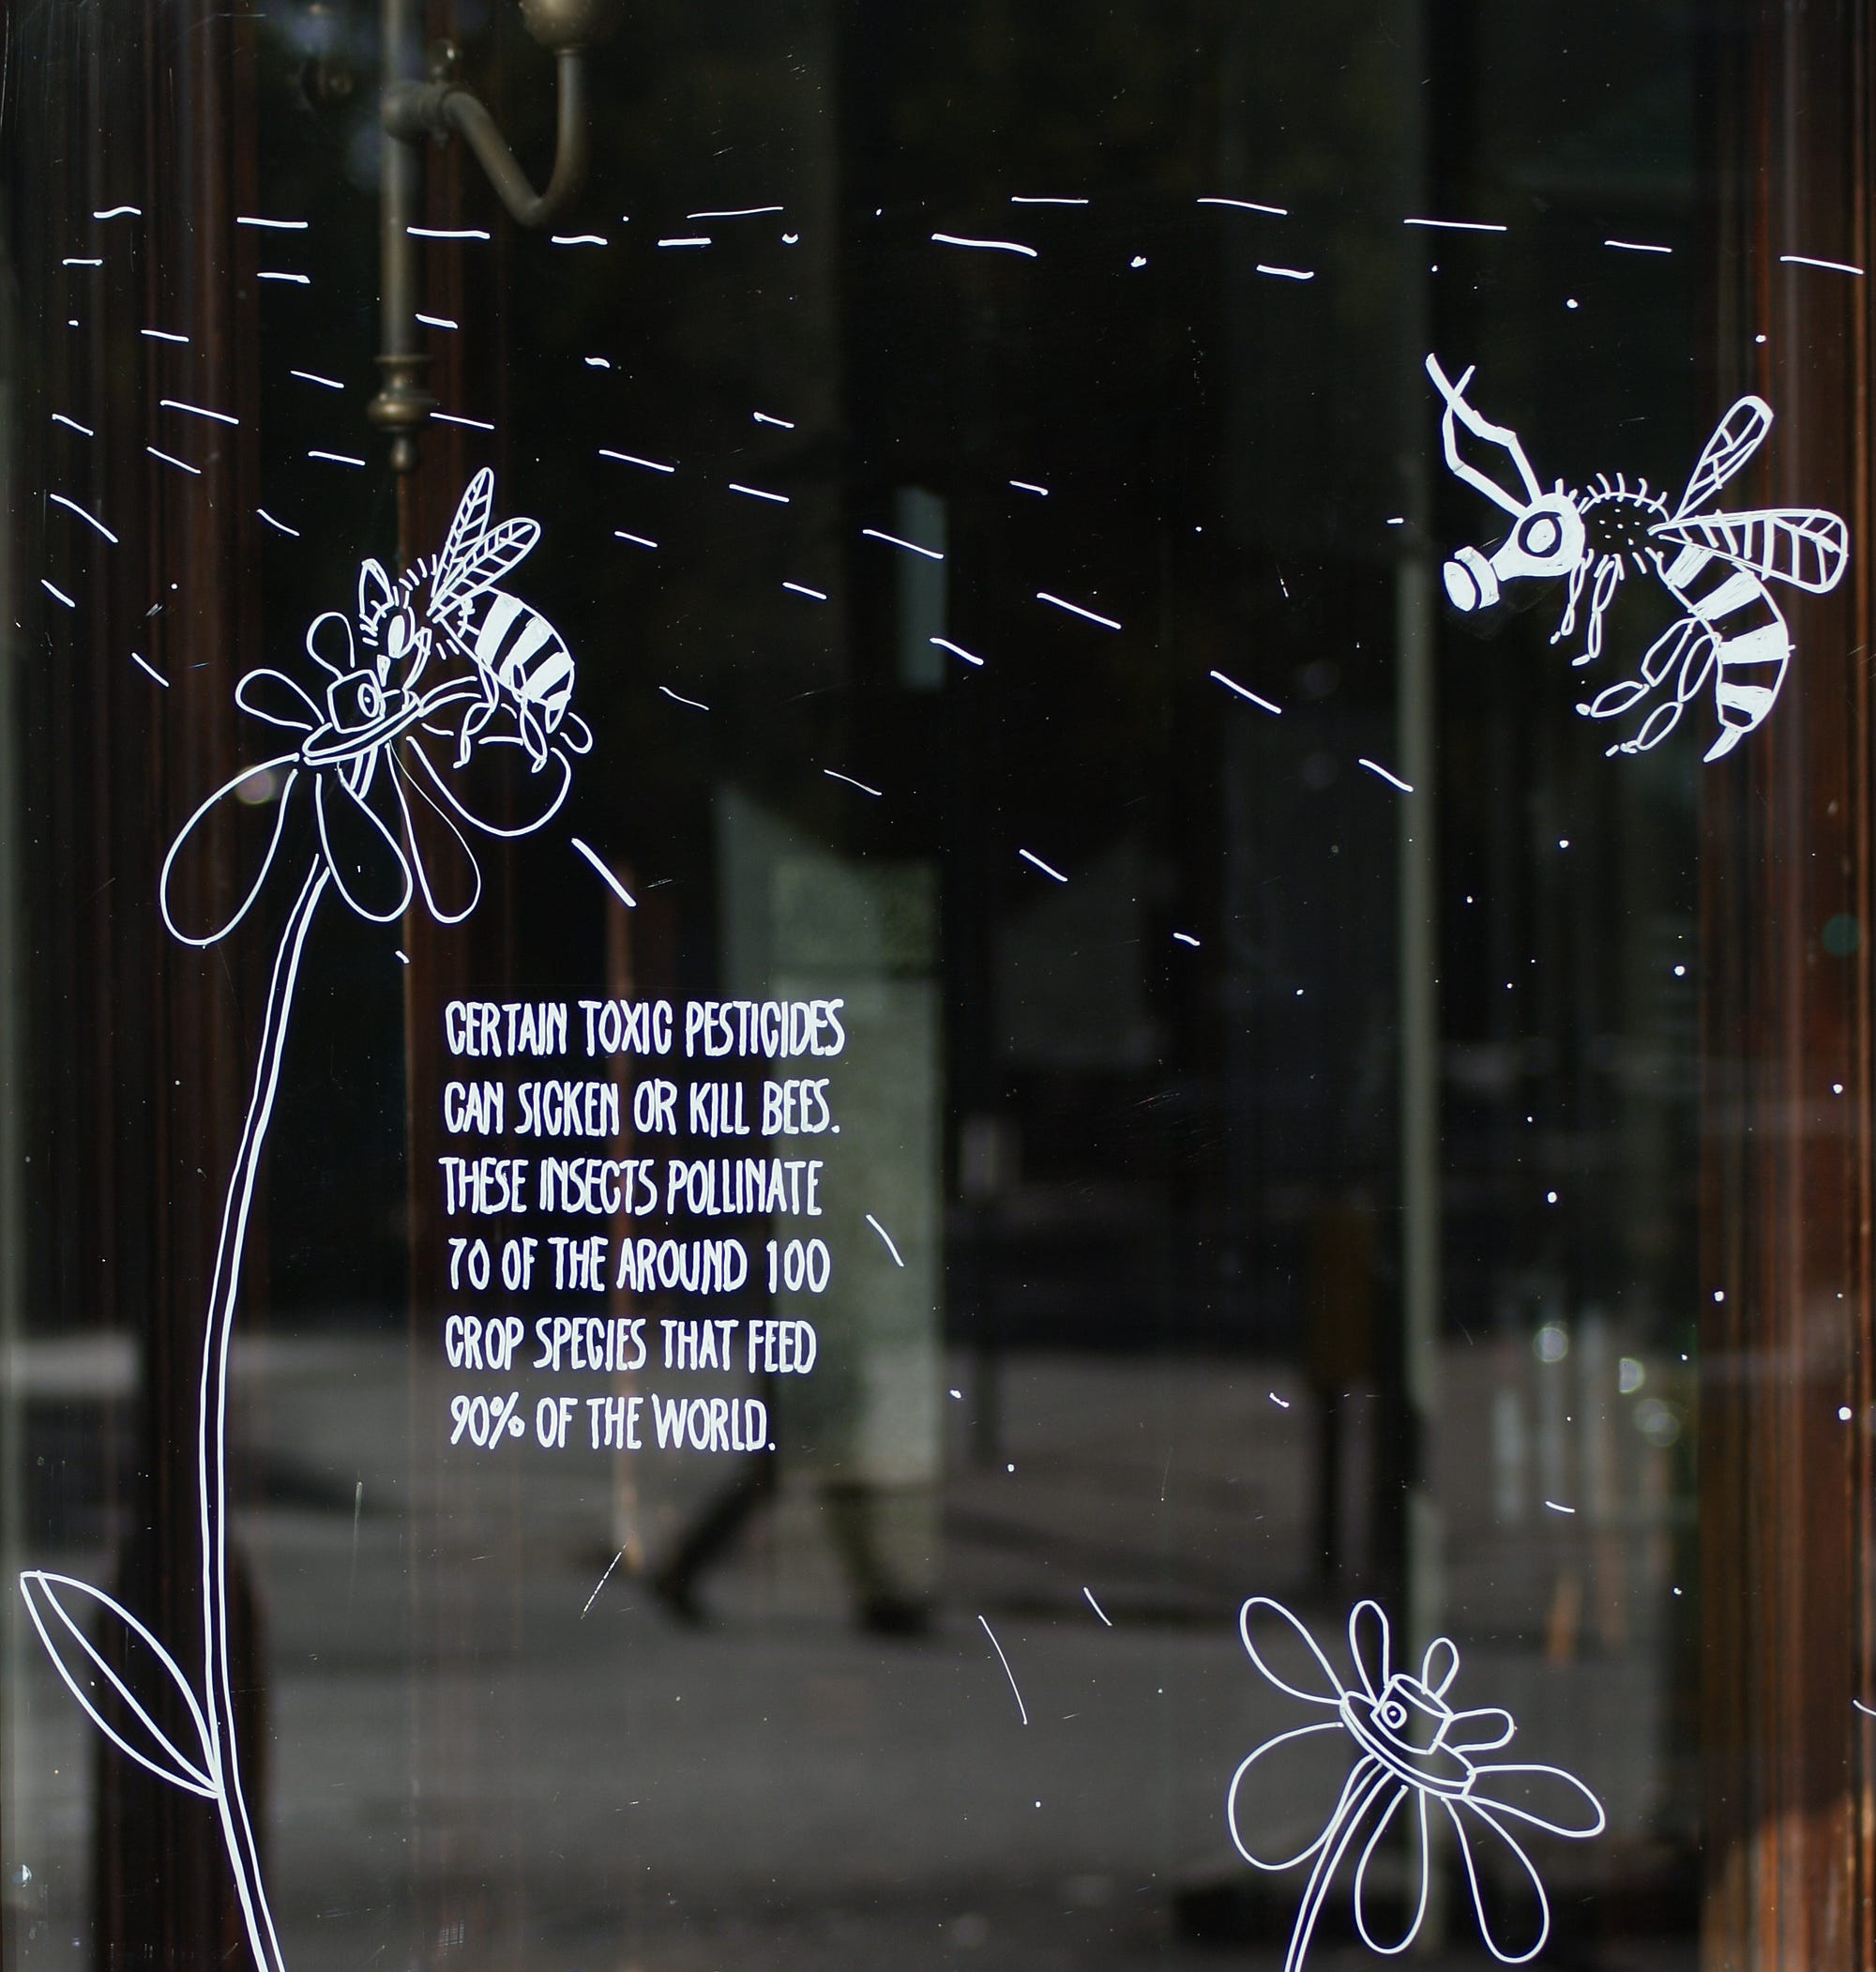 CERTAIN TOXIC PESTICIDES
CAN SICKEN OR KILL BEES.
THESE INSECTS POLLINATE
70 OF THE AROUND 100
CROP SPECIES THAT FEED
90% OF THE WORLD.